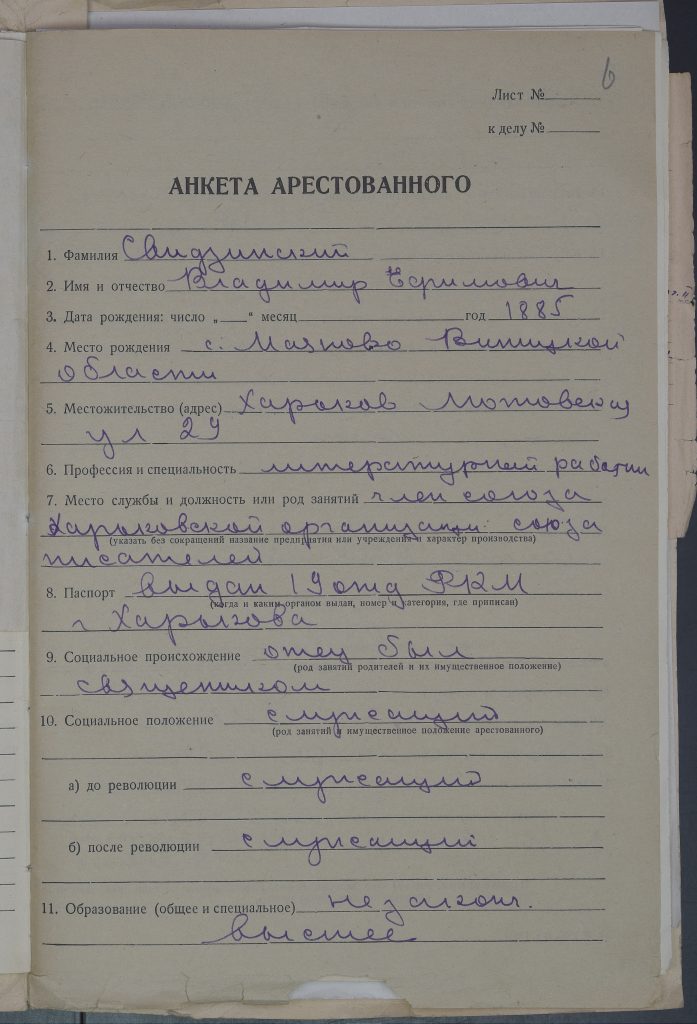 6
Лист №
к делу №
АНКЕТА АРЕСТОВАННОГО
1. Фамилия Свидзинский
2. Имя и отчество Владимир Ефимович
3. Дата рождения: число „ “ месяц год 1885
4. Место рождения с. Маяново Виницкой
области
5. Местожительство (адрес) Харьков
ул 29
6. Профессия и специальность литературный работник
7. Место службы и должность или род занятий член союза
Харьковской организации союза
(указать без сокращений название предприятия или учреждения и характер производства)
писателей
8. Паспорт выдан 19 отд РКМ
(когда и каким органом выдан, номер и категория, где приписан)
г Харькова
9. Социальное происхождение отец был
(род занятий родителей и их имущественное положение)
священиком
10. Социальное положение служащий
(род занятий и имущественное положение арестованного)
а) до революции служащий
б) после революции служащий
11. Образование (общее и специальное) незаконч.
высшее